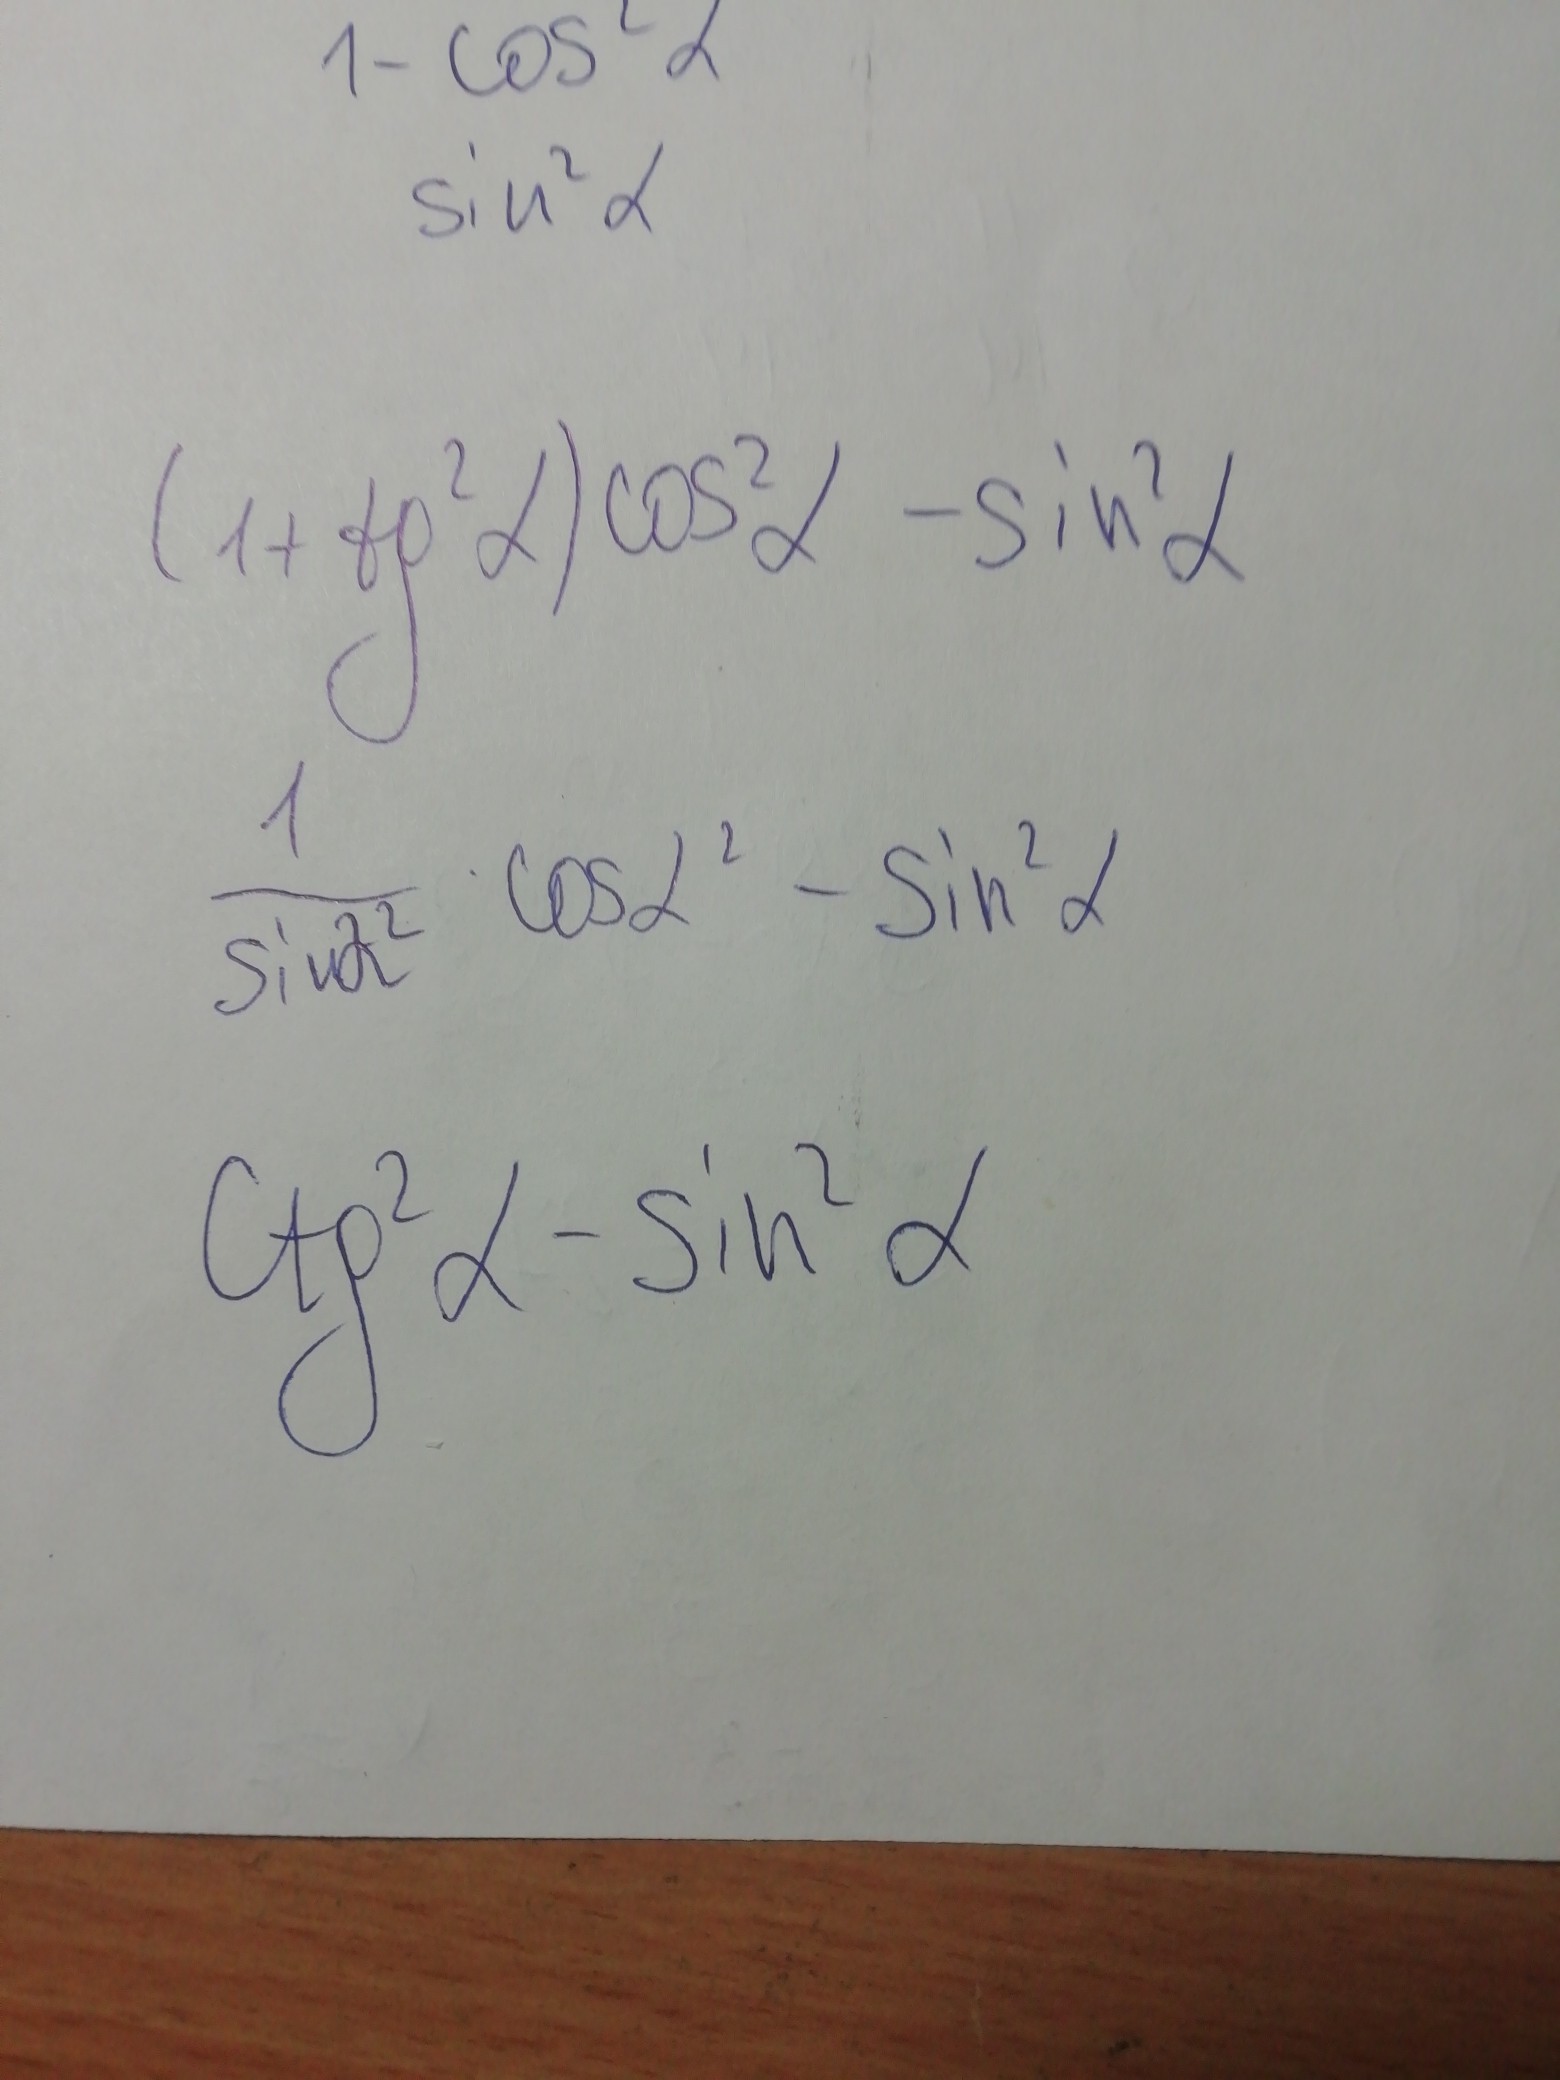 1 - cos²α
sin²α
(1 + tg²α) cos²α - sin²α
1
sinα² · cosα² - sin²α
ctg²α - sin²α